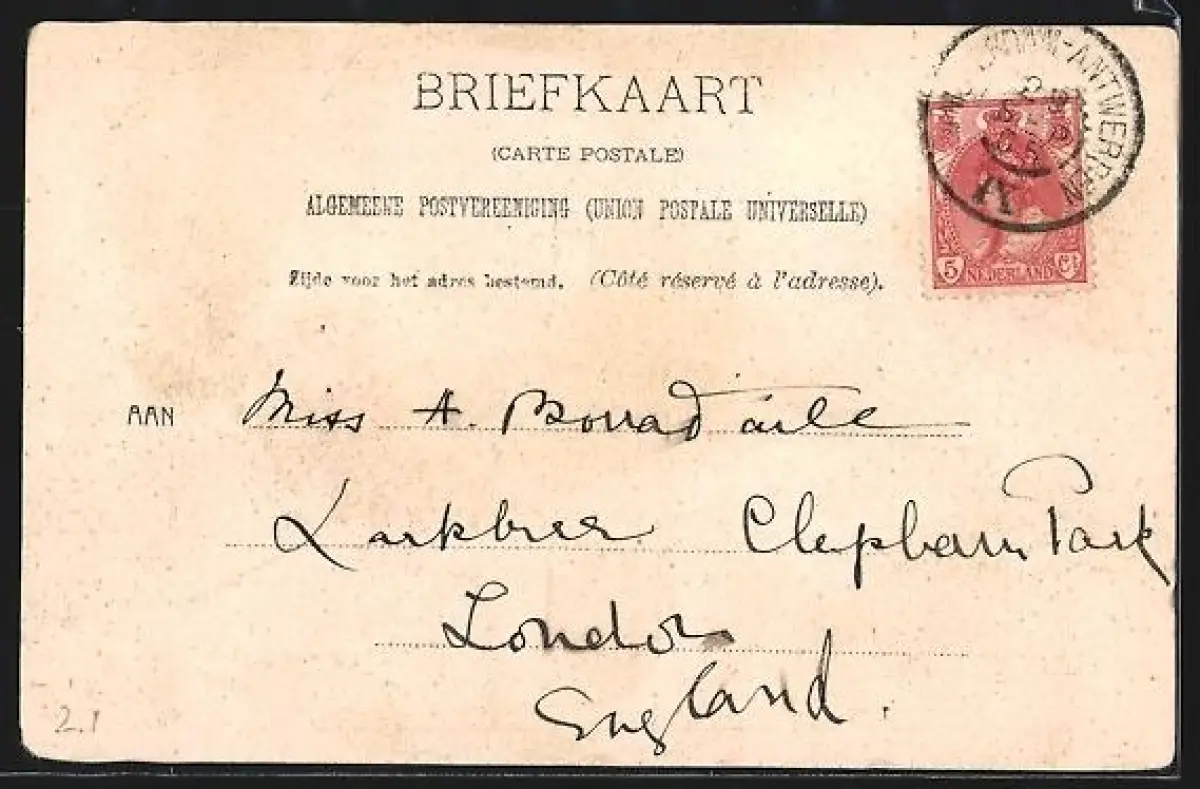 BRIEFKAART
(CARTE POSTALE)
ALGEMEENE POSTVEREENIGING (UNION POSTALE UNIVERSELLE)
Zijde voor het adres bestemd. (Côté réservé à l'adresse).
ANTWERPEN
IV
5 NEDERLAND Ct
AAN Miss A. Borradaile
Larkbere Clapham Park
London
England.
2.1